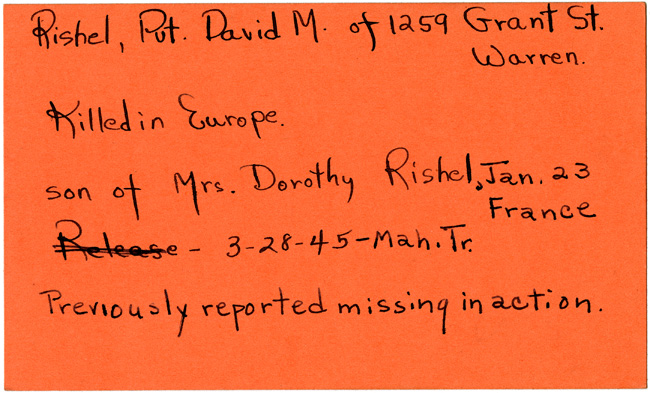 Rishel, Pvt. David M. of 1259 Grant St.
Warren.
Killed in Europe.
son of Mrs. Dorothy Rishel, Jan. 23
France
Release - 3-28-45-Mah. Tr.
Previously reported missing in action.